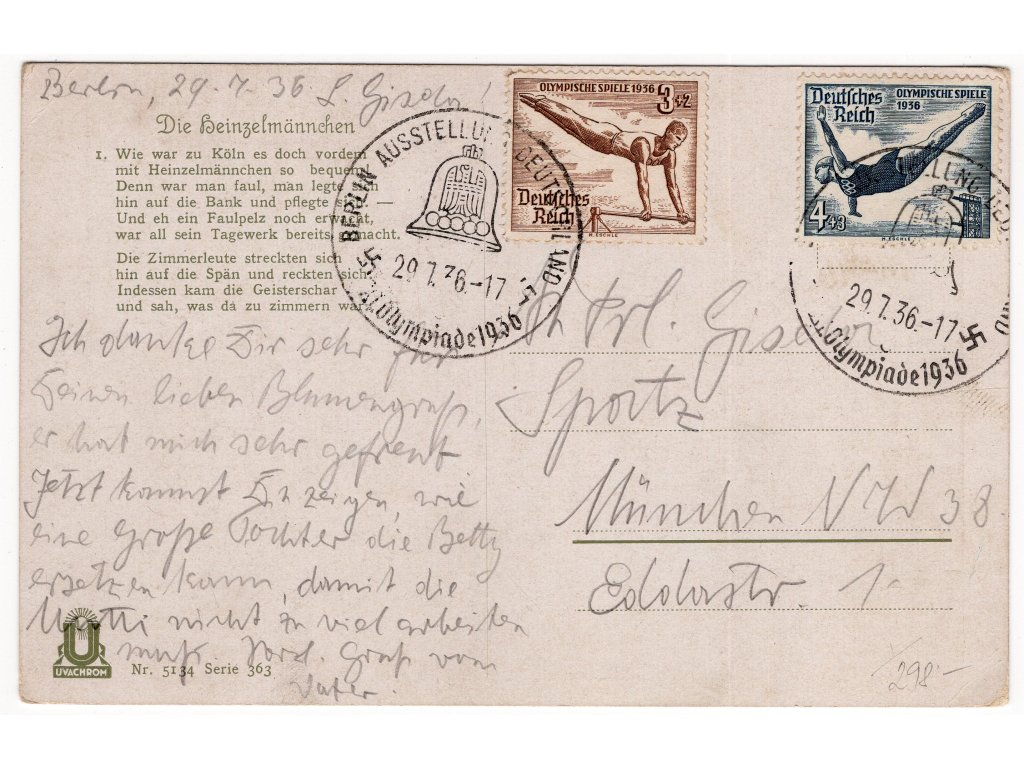 Berlin, 29.7.36 L. Gisela!
Die Heinzelmännchen
1. Wie war zu Köln es doch vordem
mit Heinzelmännchen so bequem
Denn war man faul, man legte sich
hin auf die Bank und pflegte s —
Und eh ein Faulpelz noch erwacht,
war all sein Tagewerk bereits gemacht.
Die Zimmerleute streckten sich
hin auf die Spän und reckten sich.
Indessen kam die Geisterschar
und sah, was da zu zimmern war
Ich danke Dir sehr für
Deinen lieben Blumengruß,
er hat mich sehr gefreut
Jetzt kannst Du zeigen, wie
eine große Tochter die Betty
ersetzen kann, damit die
Mutti nicht zu viel arbeiten
muß. Herzl. Gruß vom
Vater.
UVACHROM
Nr. 5134 Serie 363
BERLIN AUSSTELLUNG DEUTSCHLAND
29.7.36.-17
XI. Olympiade 1936
OLYMPISCHE SPIELE 1936
3+2
Deutsches
Reich
M. ESCHLE
OLYMPISCHE SPIELE
1936
Deutsches
Reich
4+3
M. ESCHLE
LLUNG DEU ND
29.7.36.-17
Olympiade 1936
Frl. Gisela
Sportz
München NW 38.
Eddastr. 1.
298.-